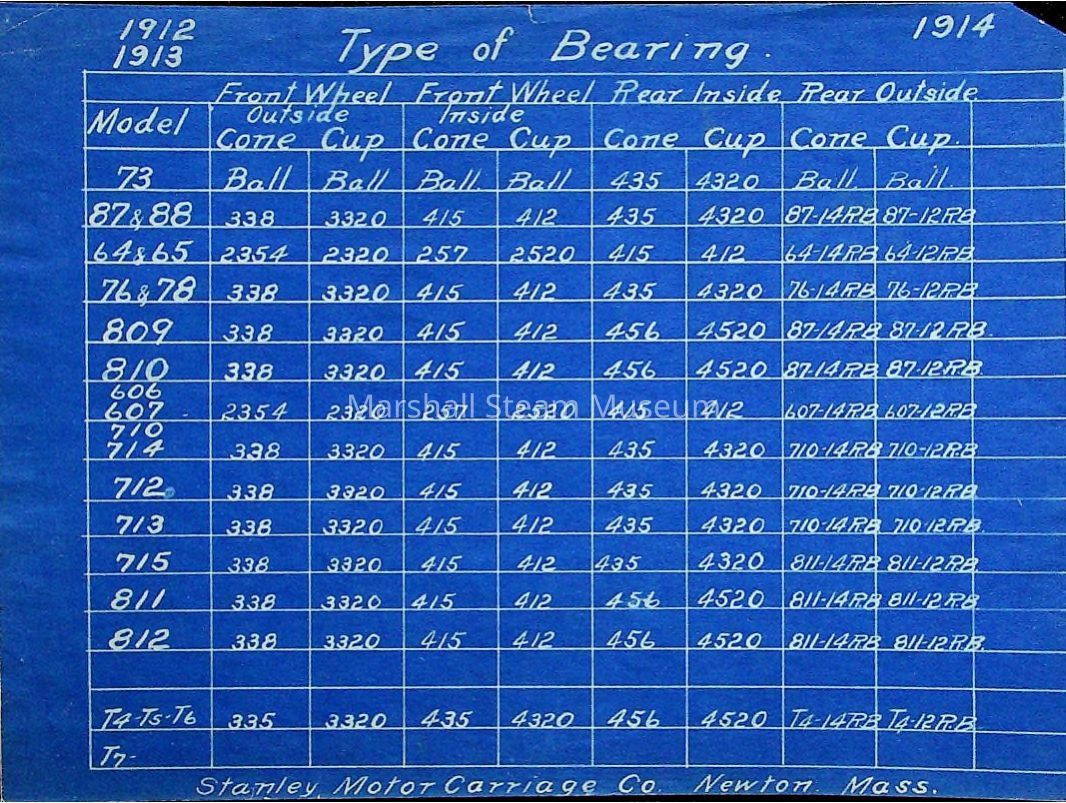 1912 1914
1913 Type of Bearing.
Front Wheel Front Wheel Rear Inside Rear Outside
Outside Inside
Model Cone Cup Cone Cup Cone Cup Cone Cup.
73 Ball Ball Ball. Ball 435 4320 Ball. Ball.
87&88 338 3320 415 412 435 4320 87-14RB 87-12RB
64&65 2354 2320 257 2520 415 412 64-14RB 64-12RB
76&78 338 3320 415 412 435 4320 76-14RB 76-12RB
809 338 3320 415 412 456 4520 87-14RB 87-12RB.
810 338 3320 415 412 456 4520 87-14RB 87-12RB.
606
607 2354 2320 257 2520 415 412 607-14RB 607-12RB
Marshall Steam Museum
710
714 338 3320 415 412 435 4320 710-14RB 710-12RB
712 338 3320 415 412 435 4320 710-14RB 710-12RB
713 338 3320 415 412 435 4320 710-14RB 710-12RB.
715 338 3320 415 412 435 4320 811-14RB 811-12RB
811 338 3320 415 412 456 4520 811-14RB 811-12RB
812 338 3320 415 412 456 4520 811-14RB 811-12RB.
T4-T5-T6 335 3320 435 4320 456 4520 T4-14RB T4-12RB.
T7-
Stanley Motor Carriage Co. Newton. Mass.